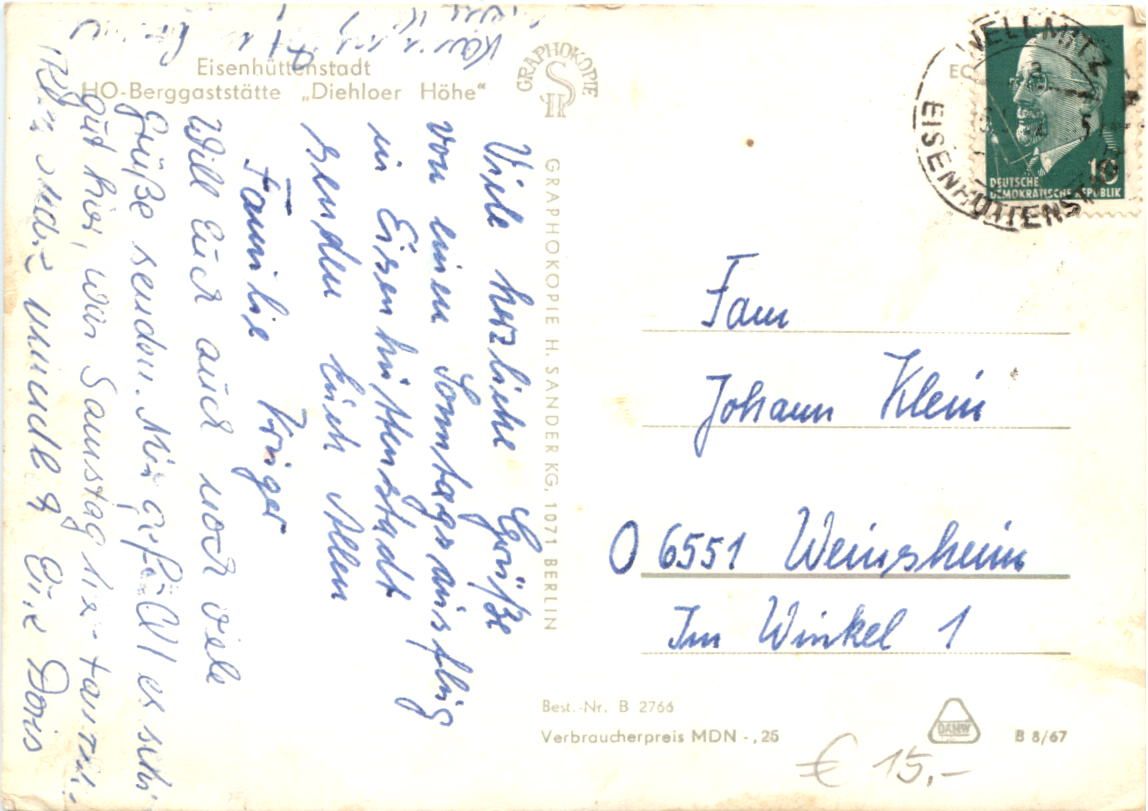 Eisenhüttenstadt
HO-Berggaststätte „Diehloer Höhe“
GRAPHOKOPIE
H S
Viele herzliche Grüße
von einem Sonntagsausflug
in Eisenhüttenstadt
senden Euch Allen
Familie Krüger
Will Euch auch noch viele
Grüße senden. Mir gefällt es sehr
gut hier, war Samstag hier tanzen.
Eure Doris
GRAPHOKOPIE H. SANDER KG, 1071 BERLIN
WELLMITZ
EISENHÜTTENSTADT
10
DEUTSCHE
DEMOKRATISCHE REPUBLIK
Fam
Johann Klein
O 6551 Weinsheim
Im Winkel 1
Best.-Nr. B 2766
Verbraucherpreis MDN -,25
DAMW
B 8/67
€ 15,-